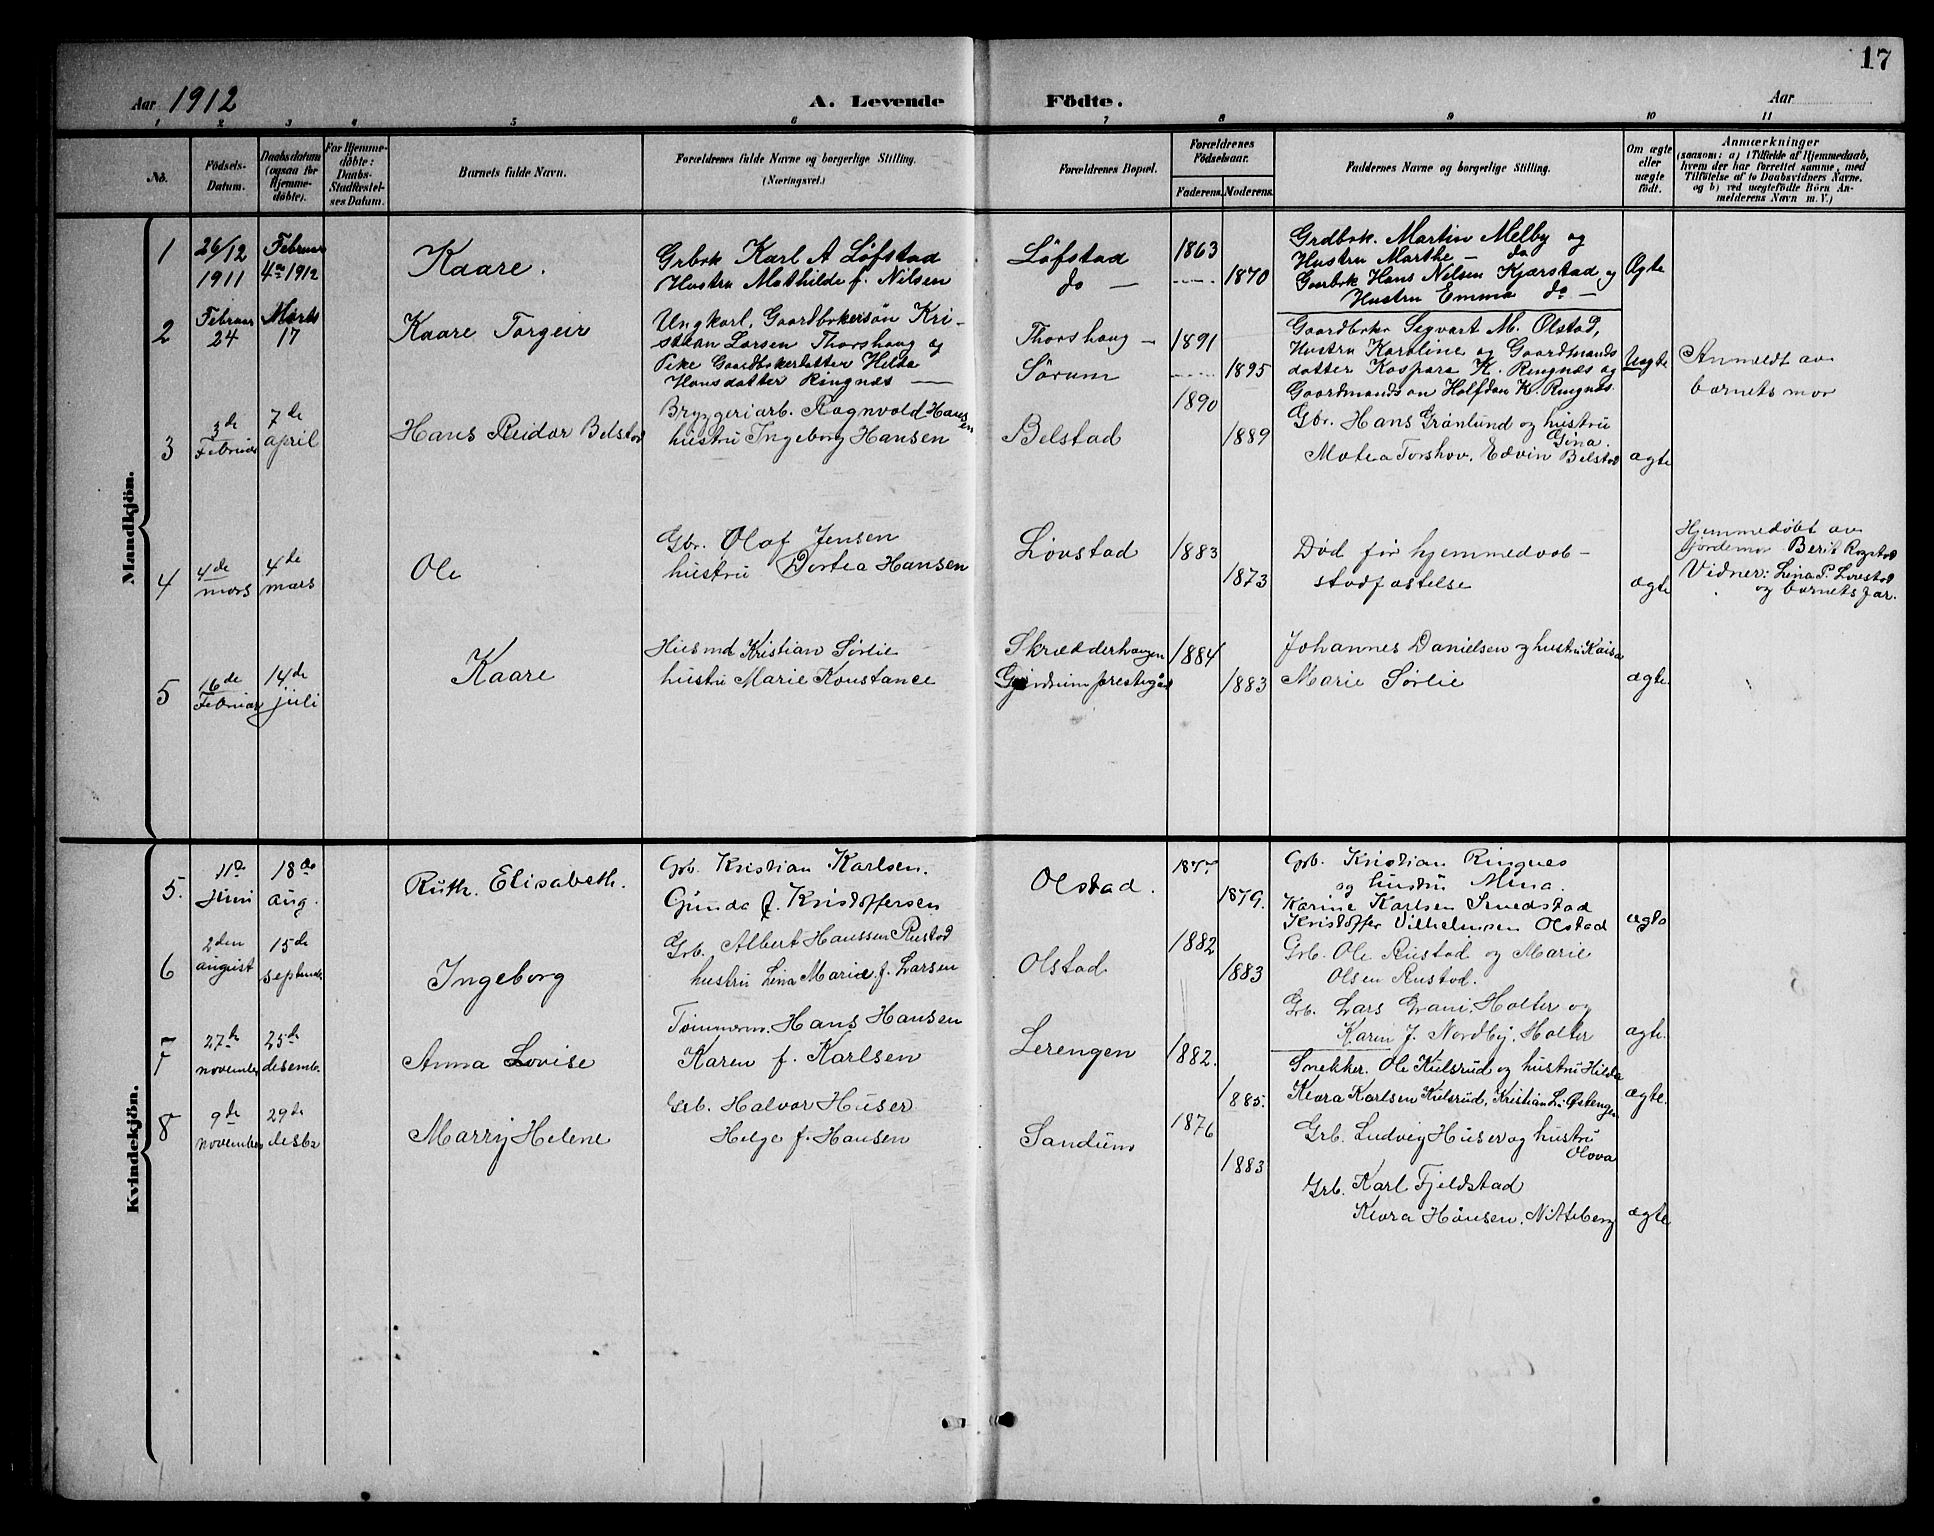 17
Aar 1912
A. Levende Födte.
Aar
1 2 3 4 5 6 7 8 9 10 11
No.
Födsels-
Datum.
Daabsdatum
(ogsaa for
Hjemme-
döbte).
For Hjemme-
döbte:
Daabs-
Stadfæstel-
ses Datum.
Barnets fulde Navn.
Forældrenes fulde Navne og borgerlige Stilling.
(Næringsvei.)
Forældrenes Bopæl.
Forældrenes
Födselsaar.
Faderens.
Moderens.
Faddernes Navne og borgerlige Stilling.
Om ægte
eller
uægte
födt.
Anmærkninger
(saasom: a) i Tilfælde af Hjemmedaab,
hvem der har forrettet samme, med
Tilföielse af to Daabsvidners Navne.
og b) ved uægtefödte Börn An-
melderens Navn m. V.)
Mandkjön.
1
26/12
1911
Februar
4de 1912
Kaare.
Grbok Karl A Løfstad
Hustru Mathilde f. Nilsen
Løfstad
do —
1863
1870
Grdbok. Martin Melby og
Hustru Marthe — do
Gaarbok Hans Nilsen Kjærstad og
Hustru Emma do —
Ægte
2
Februar
24
Marts
17
Kaare Torgeir
Ungkarl, Gaardbokersøn Kri-
stian Larsen Thorshaug og
Pike Gaardbokerdatter Hilda
Hansdatter Ringnæs —
Thorshaug —
Sørum
1891
1895
Gaardbokr Sigvart M. Olstad,
Hustru Karoline og Gaardmands
datter Kaspara K. Ringnæs og
Gaardmandsøn Halfdan K. Ringnæs.
Uægte
Anmeldt av
barnets mor
3
3de
Februar
7de
april
Hans Reidar Belstad
Bryggeriarb. Ragnvold Hansen
hustru Ingeborg Hansen
Belstad
1890
1889
Gbr. Hans Grønlund og hustru
Gina.
Matea Torshov, Edvin Belstad
ægte
4
4de
mars
4de
mars
Ole
Gbr. Olaf Jensen
hustru Dortea Hansen
Lovstad
1883
1873
Død før hjemmedaab-
stadfæstelse
ægte
Hjemmedøbt av
jordemor Berit Rogstad
Vidner: Lina P. Lovstad
og barnets far.
5
16de
Februar
14de
juli
Kaare
Husmd Kristian Sørlie
hustru Marie Konstance
Skrædderhaugen
Gjerdrum prestegård
1884
1883
Johannes Danielsen og hustru Kaisa
Marie Sørlie
ægte.
Kvindekjön.
5.
11te
juni
18de
aug.
Ruth. Elisabeth.
Grb. Kristian Karlsen.
Gunda f. Kristoffersen
Olstad.
1877.
1879.
Grb. Kristian Ringnes
og hustru Mina.
Karine Karlsen Smedstad
Kristoffer Vilhelmsen Olstad
ægte
6
2den
august
15de
septembr
Ingeborg
Grb. Albert Hanssen Rustad
hustru Lina Marie f. Larsen
Olstad
1882
1883
Grb. Ole Rustad og Marie
Olsen Rustad.
Grb. Lars Grani, Holter og
Karin J. Nordby, Holter
ægte.
7
27de
november
25de
desembr
Anna Lovise
Tømmerm. Hans Hansen
Karen f. Karlsen
Lerengen
1882.
1885.
Snekker. Ole Kulsrud og hustru Hilda
Klara Karlsen Kulsrud, Kristian L. Østengen
ægte.
8
9de
november
29de
desbr
Marry Helene
Grb. Halvor Huser
Helge f. Hansen
Sandum
1876
1883
Grb. Ludvig Huser og hustru
Olova
Grb. Karl Fjeldstad
Klara Hansen, Nitteberg
ægte